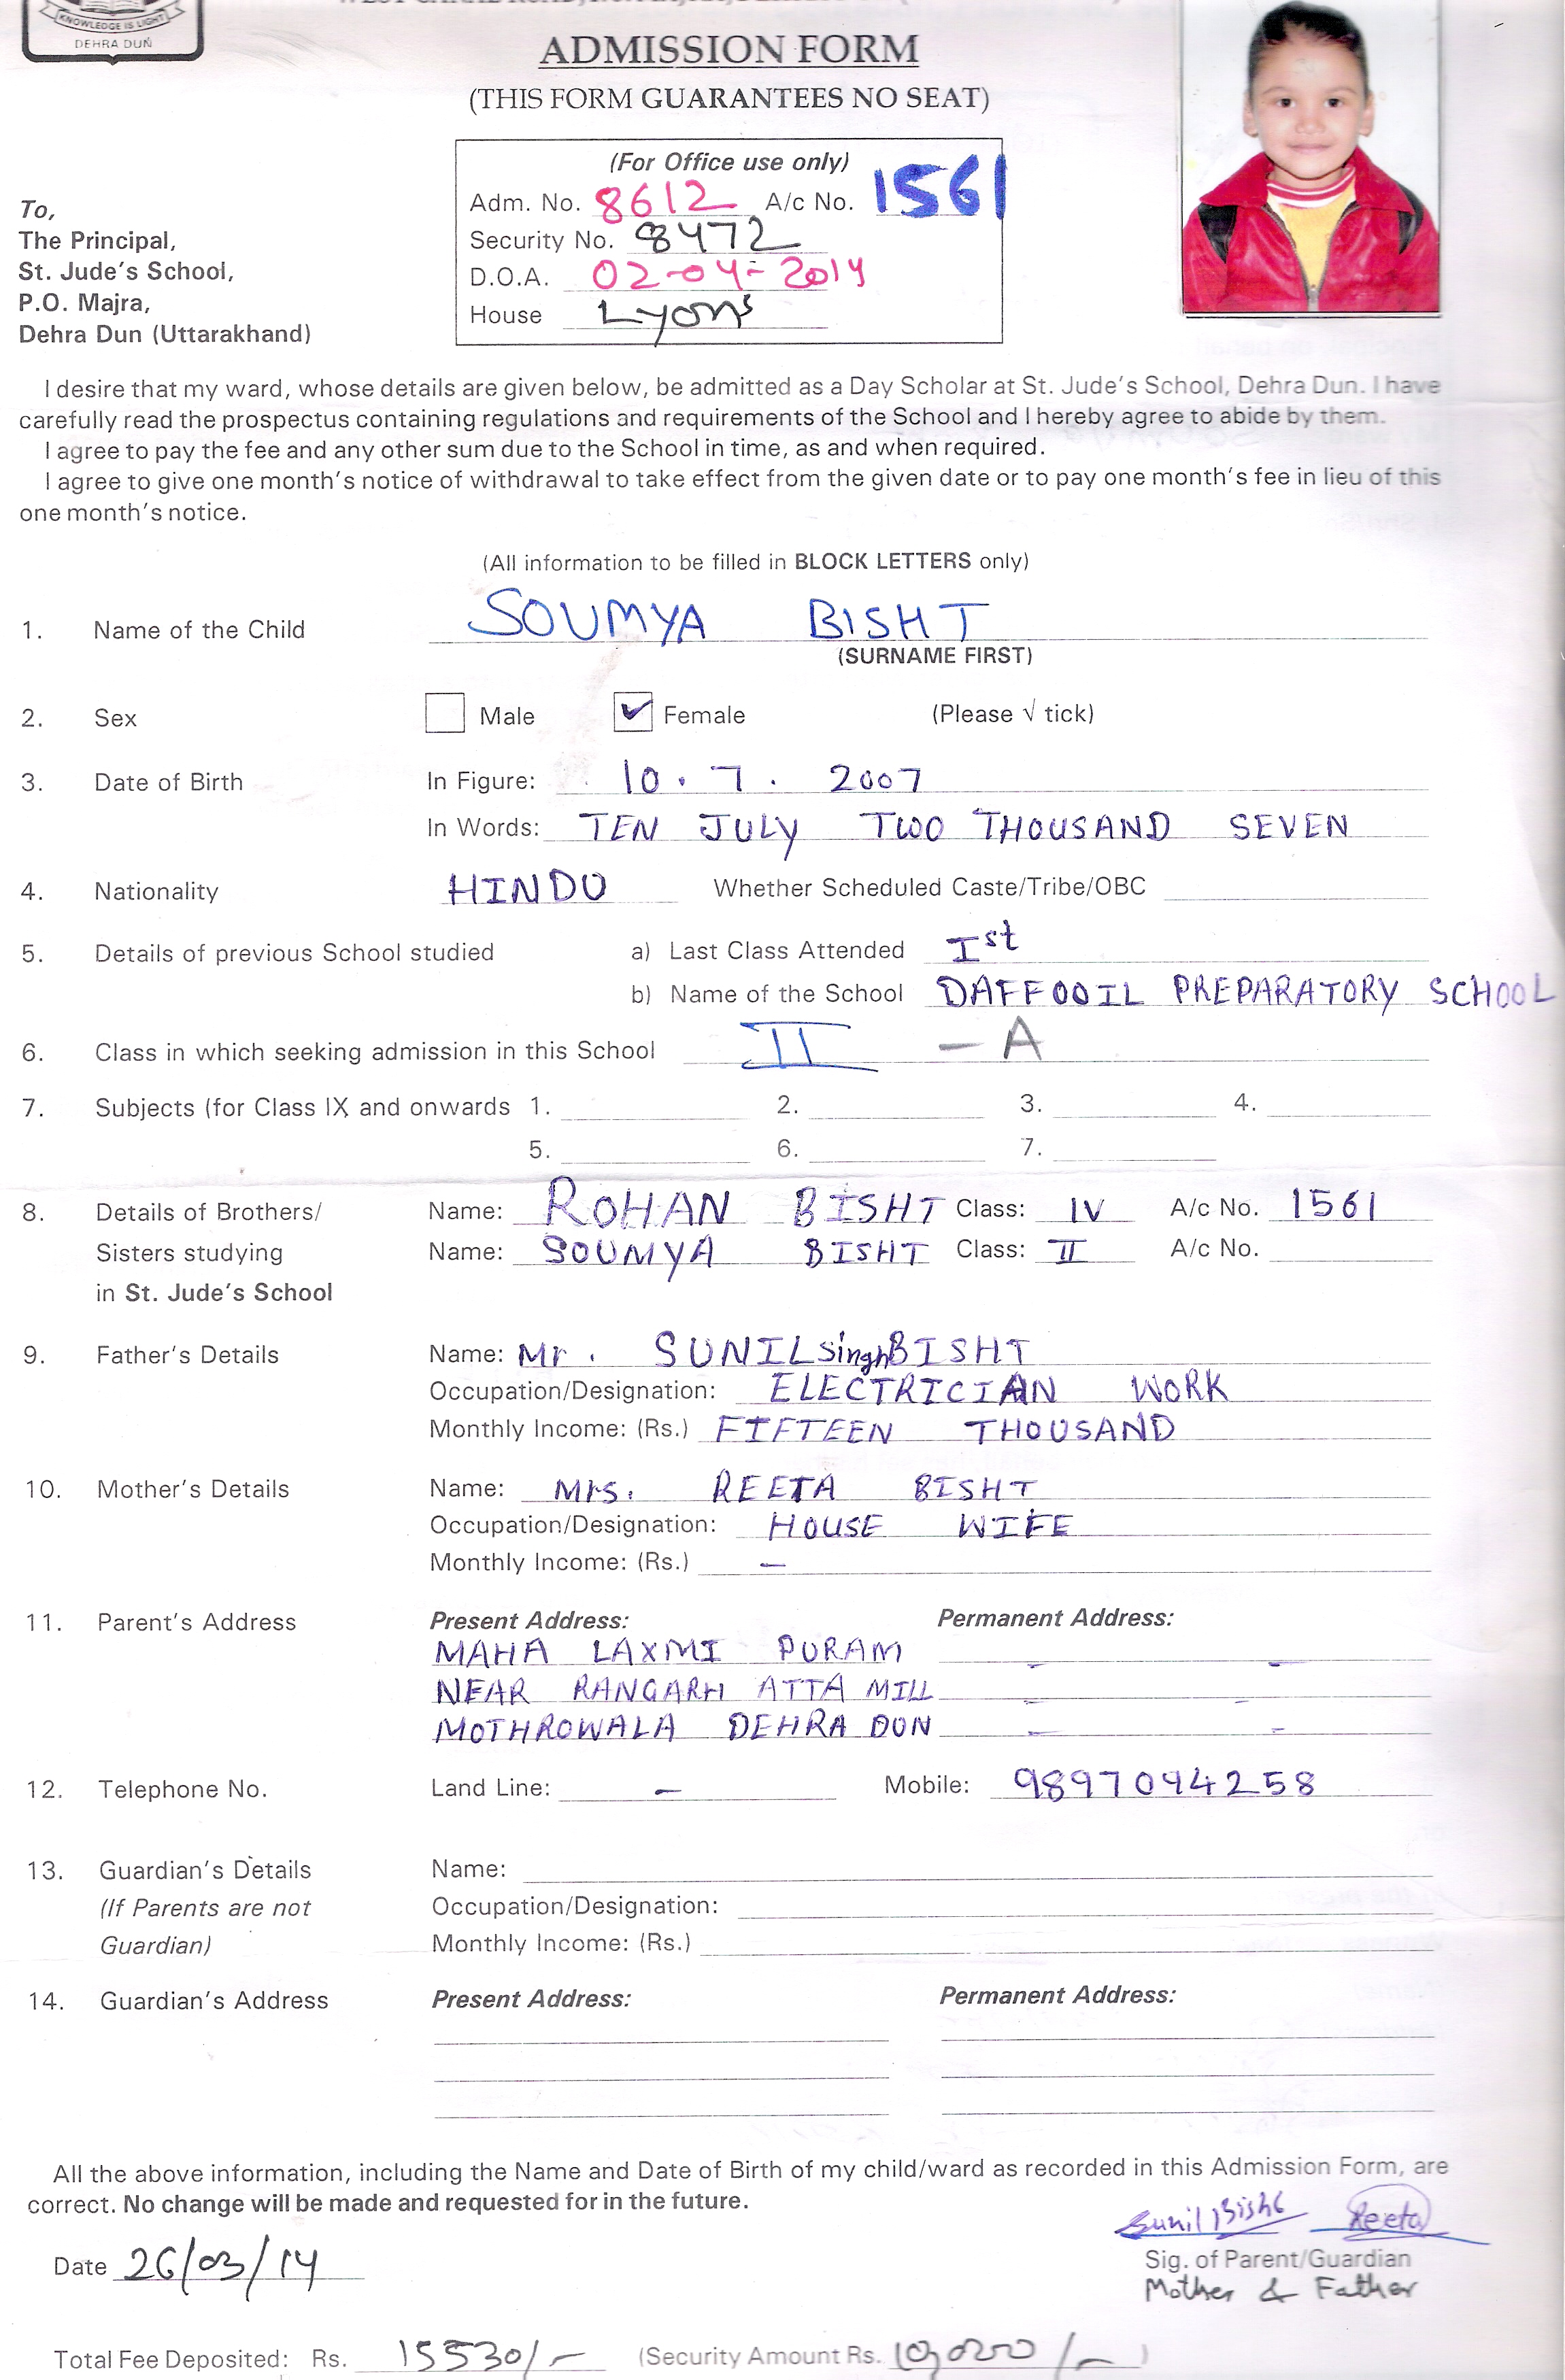 KNOWLEDGE IS LIGHT
DEHRA DUN
ADMISSION FORM
(THIS FORM GUARANTEES NO SEAT)
(For Office use only)
Adm. No. 8612 A/c No. 1561
Security No. 8472
D.O.A. 02-04-2014
House Lyons
To,
The Principal,
St. Jude's School,
P.O. Majra,
Dehra Dun (Uttarakhand)
I desire that my ward, whose details are given below, be admitted as a Day Scholar at St. Jude's School, Dehra Dun. I have
carefully read the prospectus containing regulations and requirements of the School and I hereby agree to abide by them.
I agree to pay the fee and any other sum due to the School in time, as and when required.
I agree to give one month's notice of withdrawal to take effect from the given date or to pay one month's fee in lieu of this
one month's notice.
(All information to be filled in BLOCK LETTERS only)
1. Name of the Child SOUMYA BISHT
(SURNAME FIRST)
2. Sex Male ✓ Female (Please √ tick)
3. Date of Birth In Figure: 10 . 7 . 2007
In Words: TEN JULY TWO THOUSAND SEVEN
4. Nationality HINDU Whether Scheduled Caste/Tribe/OBC
5. Details of previous School studied a) Last Class Attended Ist
b) Name of the School DAFFODIL PREPARATORY SCHOOL
6. Class in which seeking admission in this School II - A
7. Subjects (for Class IX and onwards 1. 2. 3. 4.
5. 6. 7.
8. Details of Brothers/ Name: ROHAN BISHT Class: IV A/c No. 1561
Sisters studying Name: SOUMYA BISHT Class: II A/c No.
in St. Jude's School
9. Father's Details Name: Mr. SUNIL singh BISHT
Occupation/Designation: ELECTRICIAN WORK
Monthly Income: (Rs.) FIFTEEN THOUSAND
10. Mother's Details Name: Mrs. REETA BISHT
Occupation/Designation: HOUSE WIFE
Monthly Income: (Rs.) -
11. Parent's Address Present Address: Permanent Address:
MAHA LAXMI PURAM - -
NEAR RANGARH ATTA MILL - -
MOTHROWALA DEHRA DUN - -
12. Telephone No. Land Line: - Mobile: 9897094258
13. Guardian's Details Name:
(If Parents are not Occupation/Designation:
Guardian) Monthly Income: (Rs.)
14. Guardian's Address Present Address: Permanent Address:
All the above information, including the Name and Date of Birth of my child/ward as recorded in this Admission Form, are
correct. No change will be made and requested for in the future.
Sunil Bisht Reeta
Date 26/03/14 Sig. of Parent/Guardian
Mother & Father
Total Fee Deposited: Rs. 15530/- (Security Amount Rs. 10,000/-)